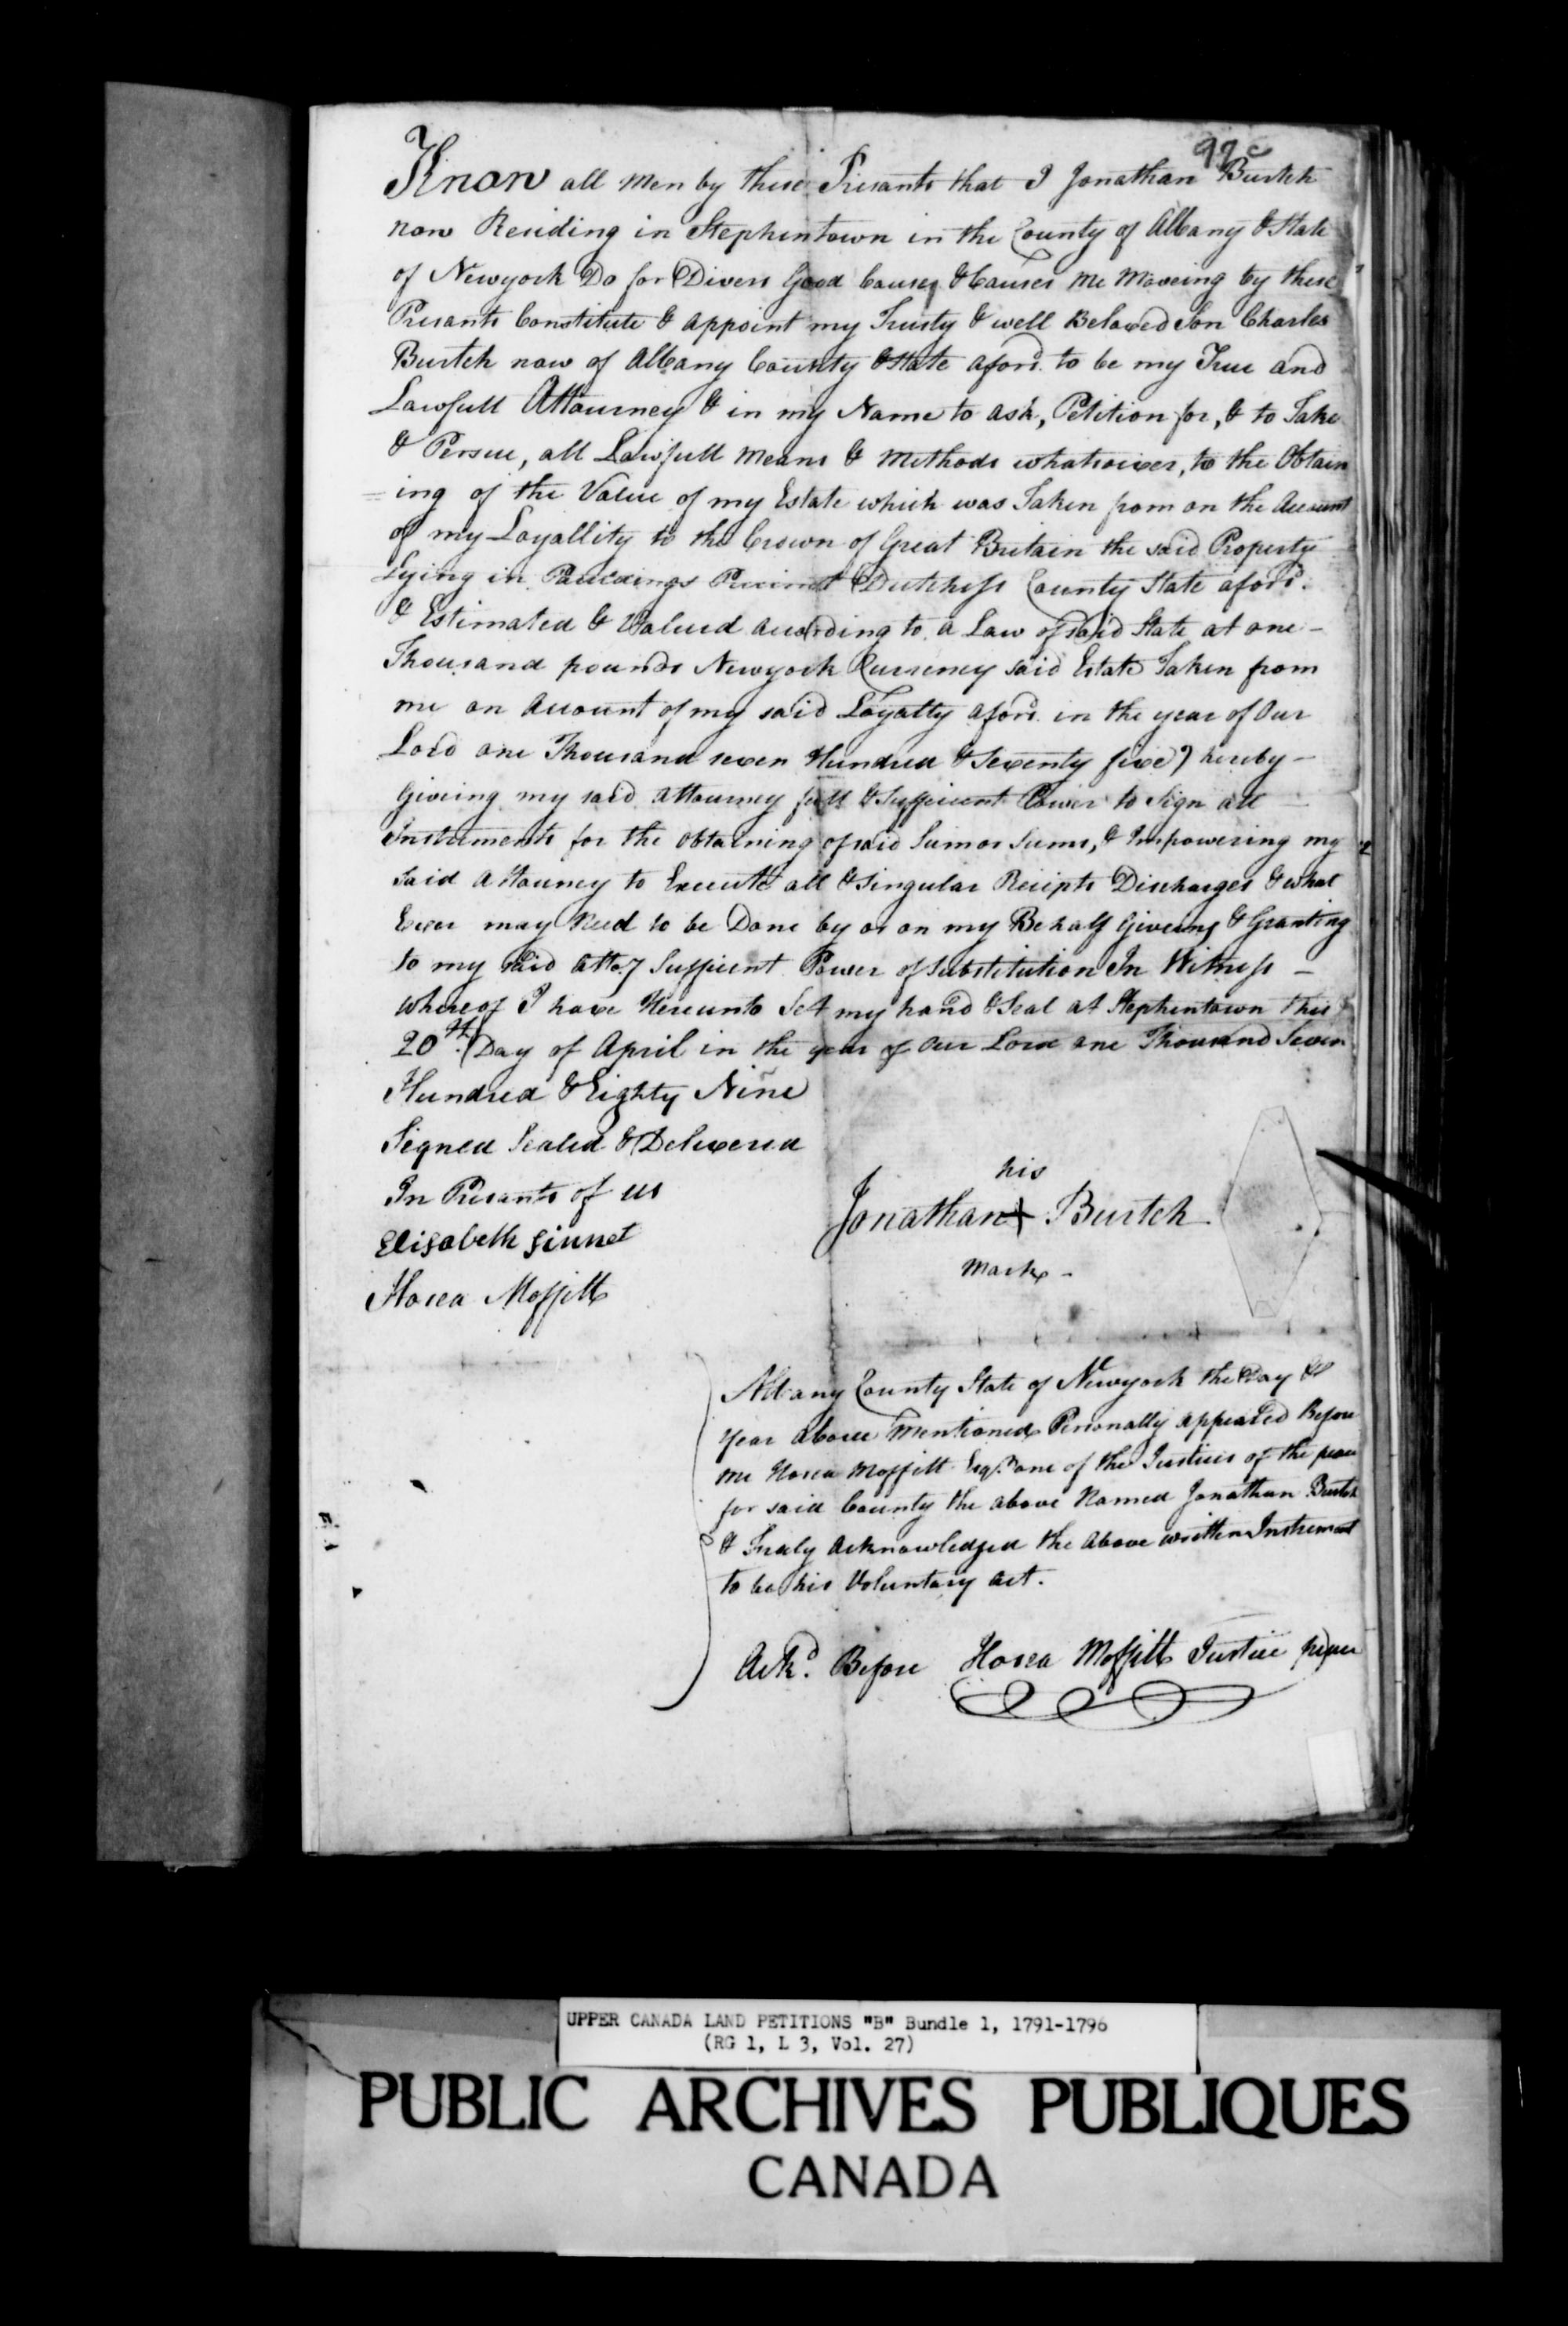 99c
Know all Men by these Presants that I Jonathan Burtch
now Residing in Stephentown in the County of Albany & State
of Newyork Do for Divers Good Causes & Causes Me Moveing by these
Presants Constitute & appoint my Trusty & well Beloved Son Charles
Burtch now of Albany County & State aforsd. to be my True and
Lawfull Attourney & in my Name to ask, Petition for, & to Take
& Persue, all Lawfull Means & Methods whatsoever, to the Obtain
=ing of the Value of my Estate which was Taken from on the Account
of my Loyallity to the Crown of Great Britain the said Property
Lying in Pauldings Precinct Dutchess County State aforsd.
& Estimated & Valued according to a Law of said State at one -
Thousand pounds Newyork Currency said Estate Taken from
me on Account of my said Loyalty aforsd. in the year of Our
Lord one Thousand seven Hundred & Seventy five) hereby -
Giveing my said Attourney full & Sufficient Power to Sign all -
Instruments for the obtaining of said Sum or Sums, & Impowering my
said Attourney to Execute all & Singular Recipts Discharges & what
Ever may Need to be Done by or on my Behalf Giveing & Granting
to my said Atto.y Sufficient Power of Substitution In Witness -
whereof I have Hereunto Set my hand & Seal at Stephentown this
20th. Day of April in the year of Our Lord one Thousand Seven
Hundred & Eighty Nine
Signed Sealed & Delivered
In Presants of us
Elisabeth Sinnet
Hosea Moffitt
his
Jonathan + Burtch
mark -
Albany County State of Newyork the Day &
year above Mentioned Personally appeared Before
me Hosea Moffitt Esqr. one of the Justices of the peace
for said County the above Named Jonathan Burtch
& Truly Acknowledged the above written Instrument
to be his Voluntary act.
Ackd. Before Hosea Moffitt Justice peace
UPPER CANADA LAND PETITIONS "B" Bundle 1, 1791-1796
(RG 1, L 3, Vol. 27)
PUBLIC ARCHIVES PUBLIQUES
CANADA